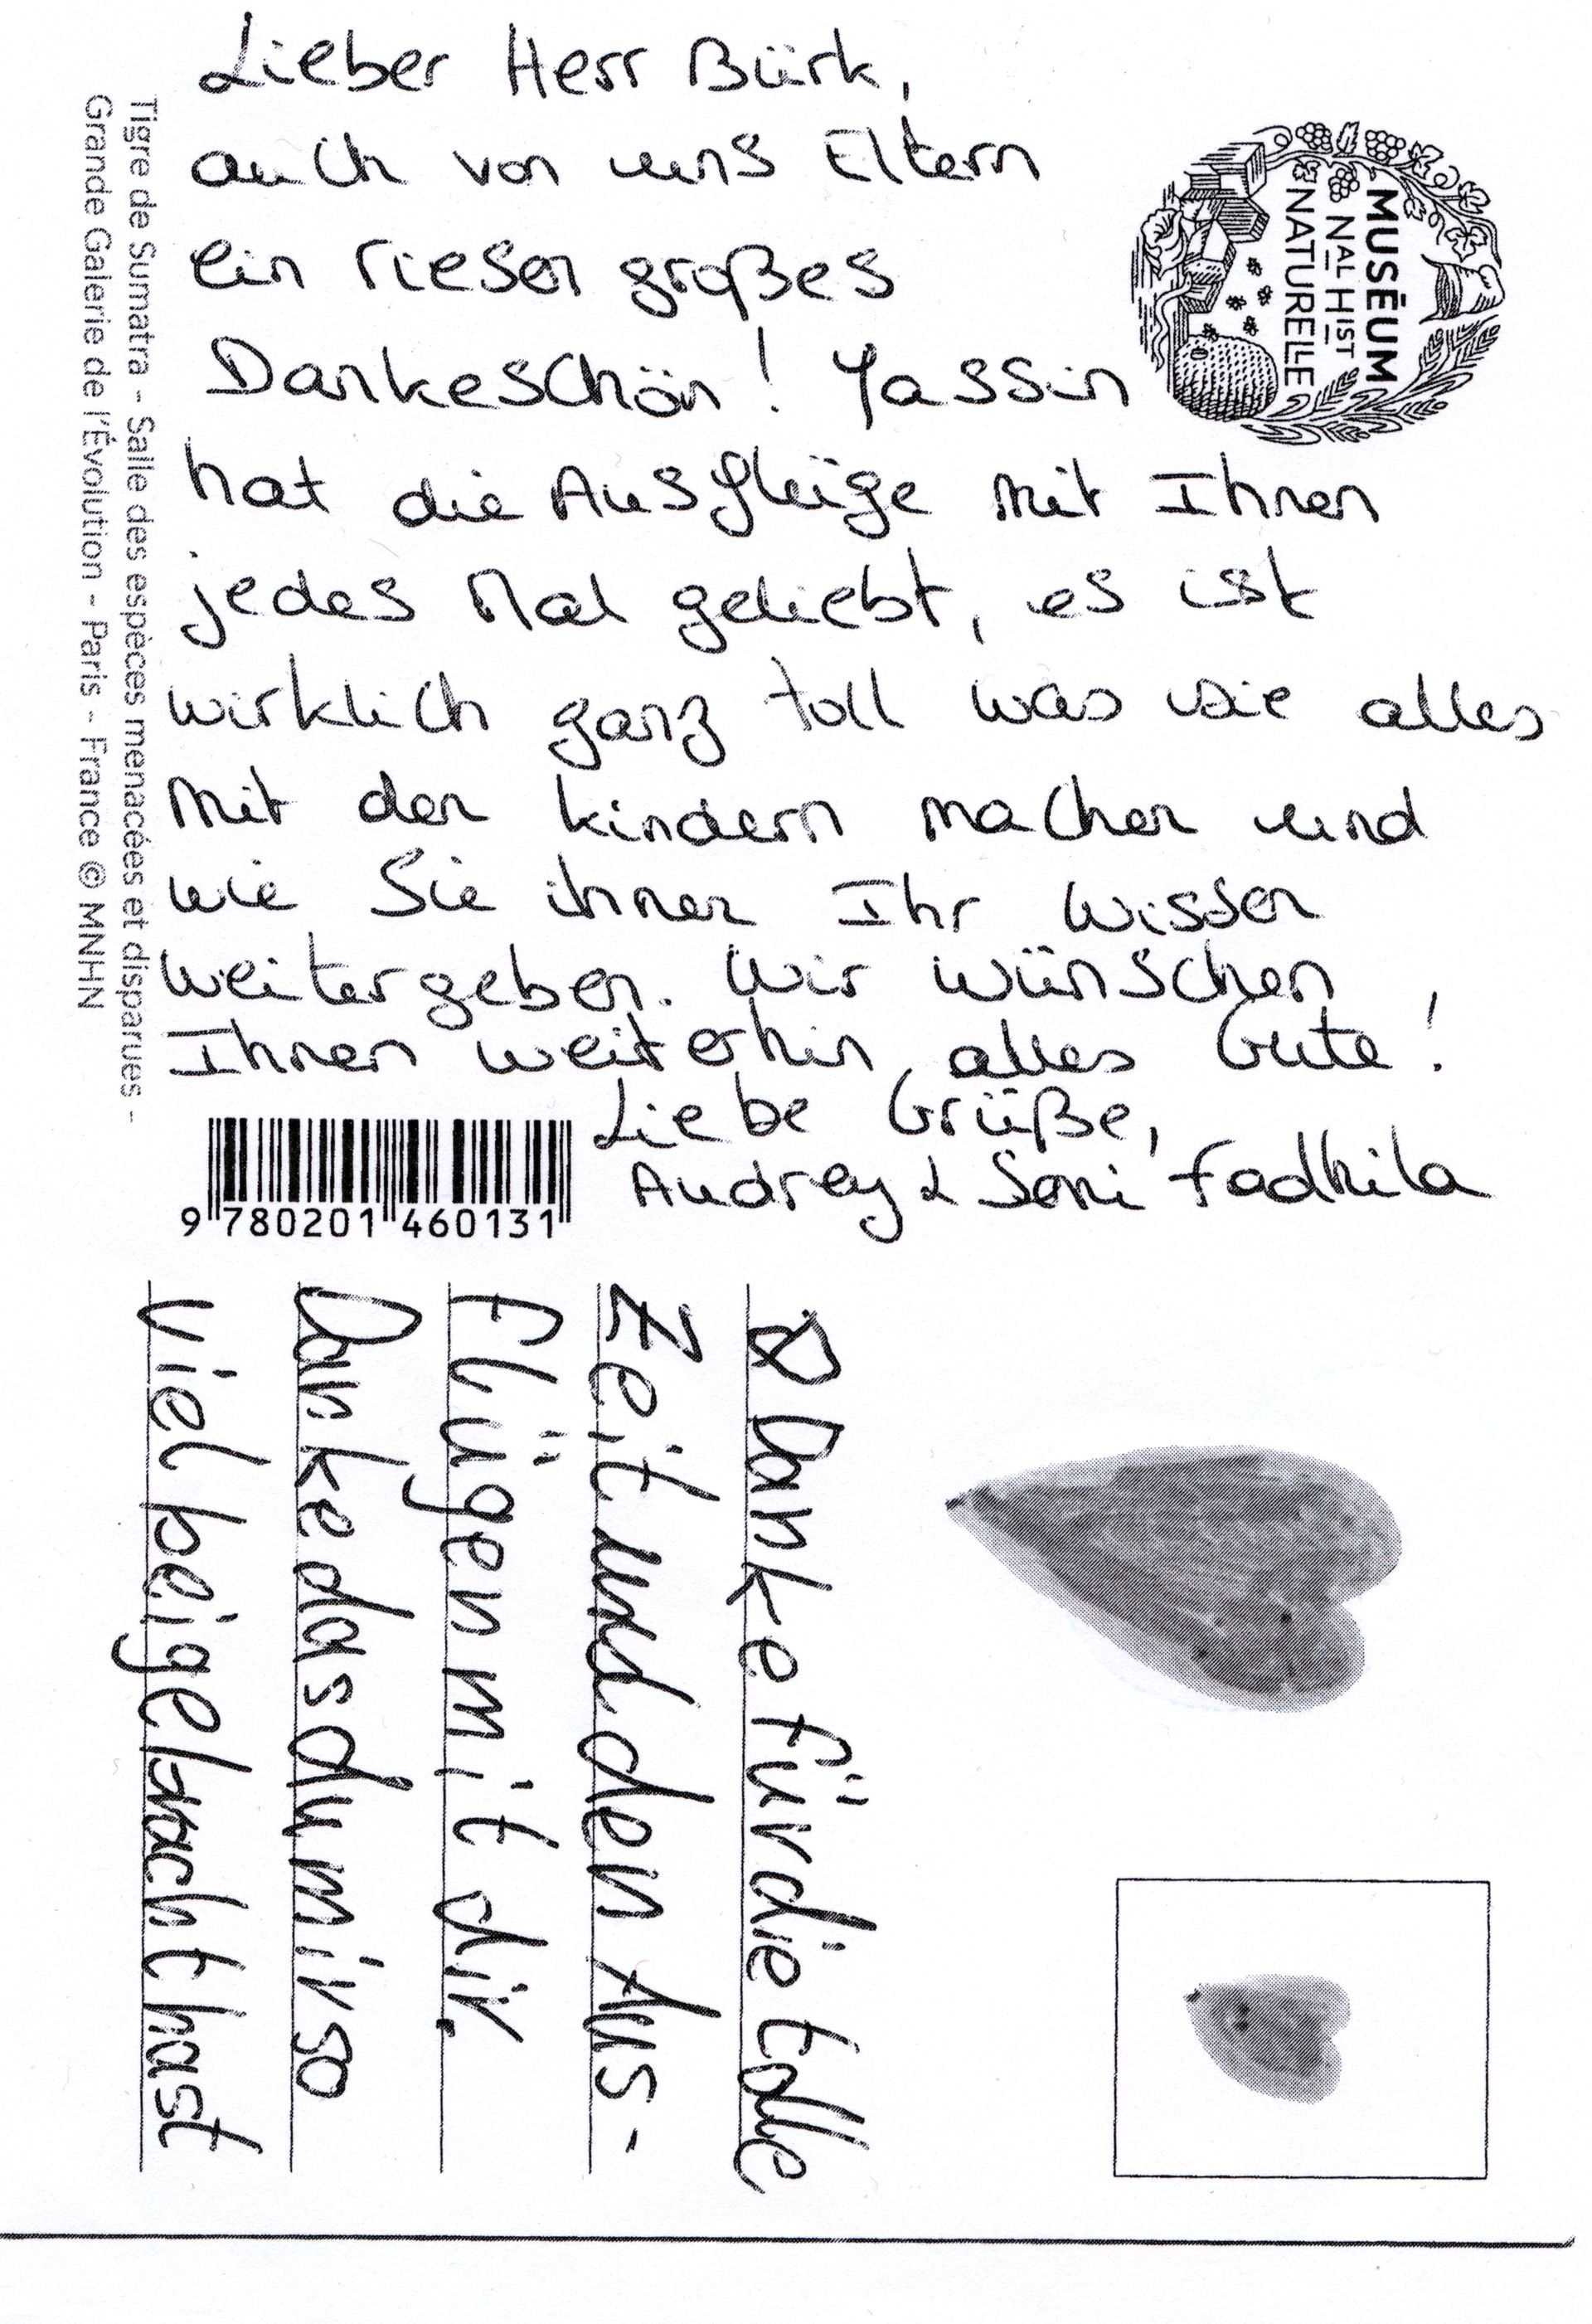 Lieber Herr Bürk,
auch von uns Eltern
ein riesen großes
Dankeschön! Yassin
hat die Ausflüge mit Ihnen
jedes Mal geliebt, es ist
wirklich ganz toll was sie alles
mit den Kindern machen und
wie Sie ihnen Ihr Wissen
weitergeben. Wir wünschen
Ihnen weiterhin alles Gute!
Liebe Grüße,
Audrey & Soni Fadhila
MUSÉUM
NAL HIST
NATURELLE
Tigre de Sumatra - Salle des espèces menacées et disparues -
Grande Galerie de l'Évolution - Paris - France © MNHN
9 780201 460131
Danke für die tolle
Zeit und den Aus-
flügen mit dir.
Danke das du mir so
viel beigebracht hast